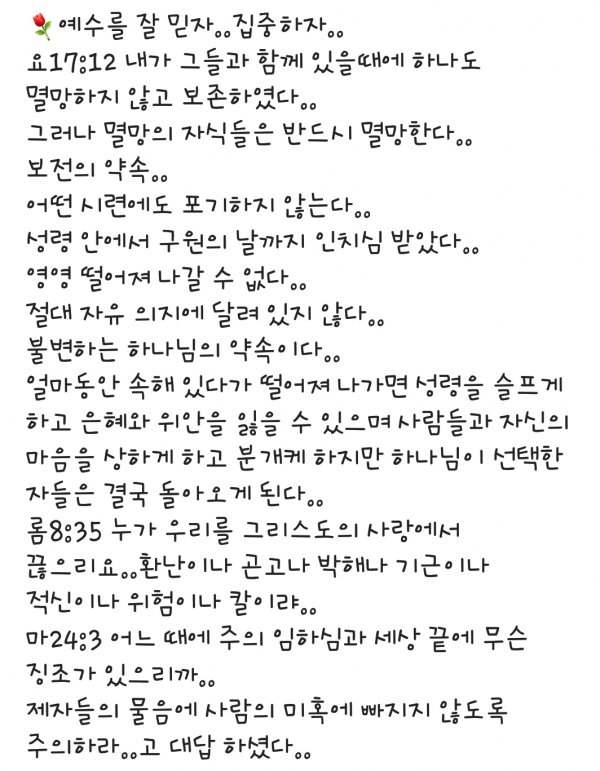 🌹예수를 잘 믿자..집중하자..
요17:12 내가 그들과 함께 있을때에 하나도
멸망하지 않고 보존하였다..
그러나 멸망의 자식들은 반드시 멸망한다..
보전의 약속..
어떤 시련에도 포기하지 않는다..
성령 안에서 구원의 날까지 인치심 받았다..
영영 떨어져 나갈 수 없다..
절대 자유 의지에 달려 있지 않다..
불변하는 하나님의 약속이다..
얼마동안 속해 있다가 떨어져 나가면 성령을 슬프게
하고 은혜와 위안을 잃을 수 있으며 사람들과 자신의
마음을 상하게 하고 분개케 하지만 하나님이 선택한
자들은 결국 돌아오게 된다..
롬8:35 누가 우리를 그리스도의 사랑에서
끊으리요..환난이나 곤고나 박해나 기근이나
적신이나 위험이나 칼이랴..
마24:3 어느 때에 주의 임하심과 세상 끝에 무슨
징조가 있으리까..
제자들의 물음에 사람의 미혹에 빠지지 않도록
주의하라..고 대답 하셨다..